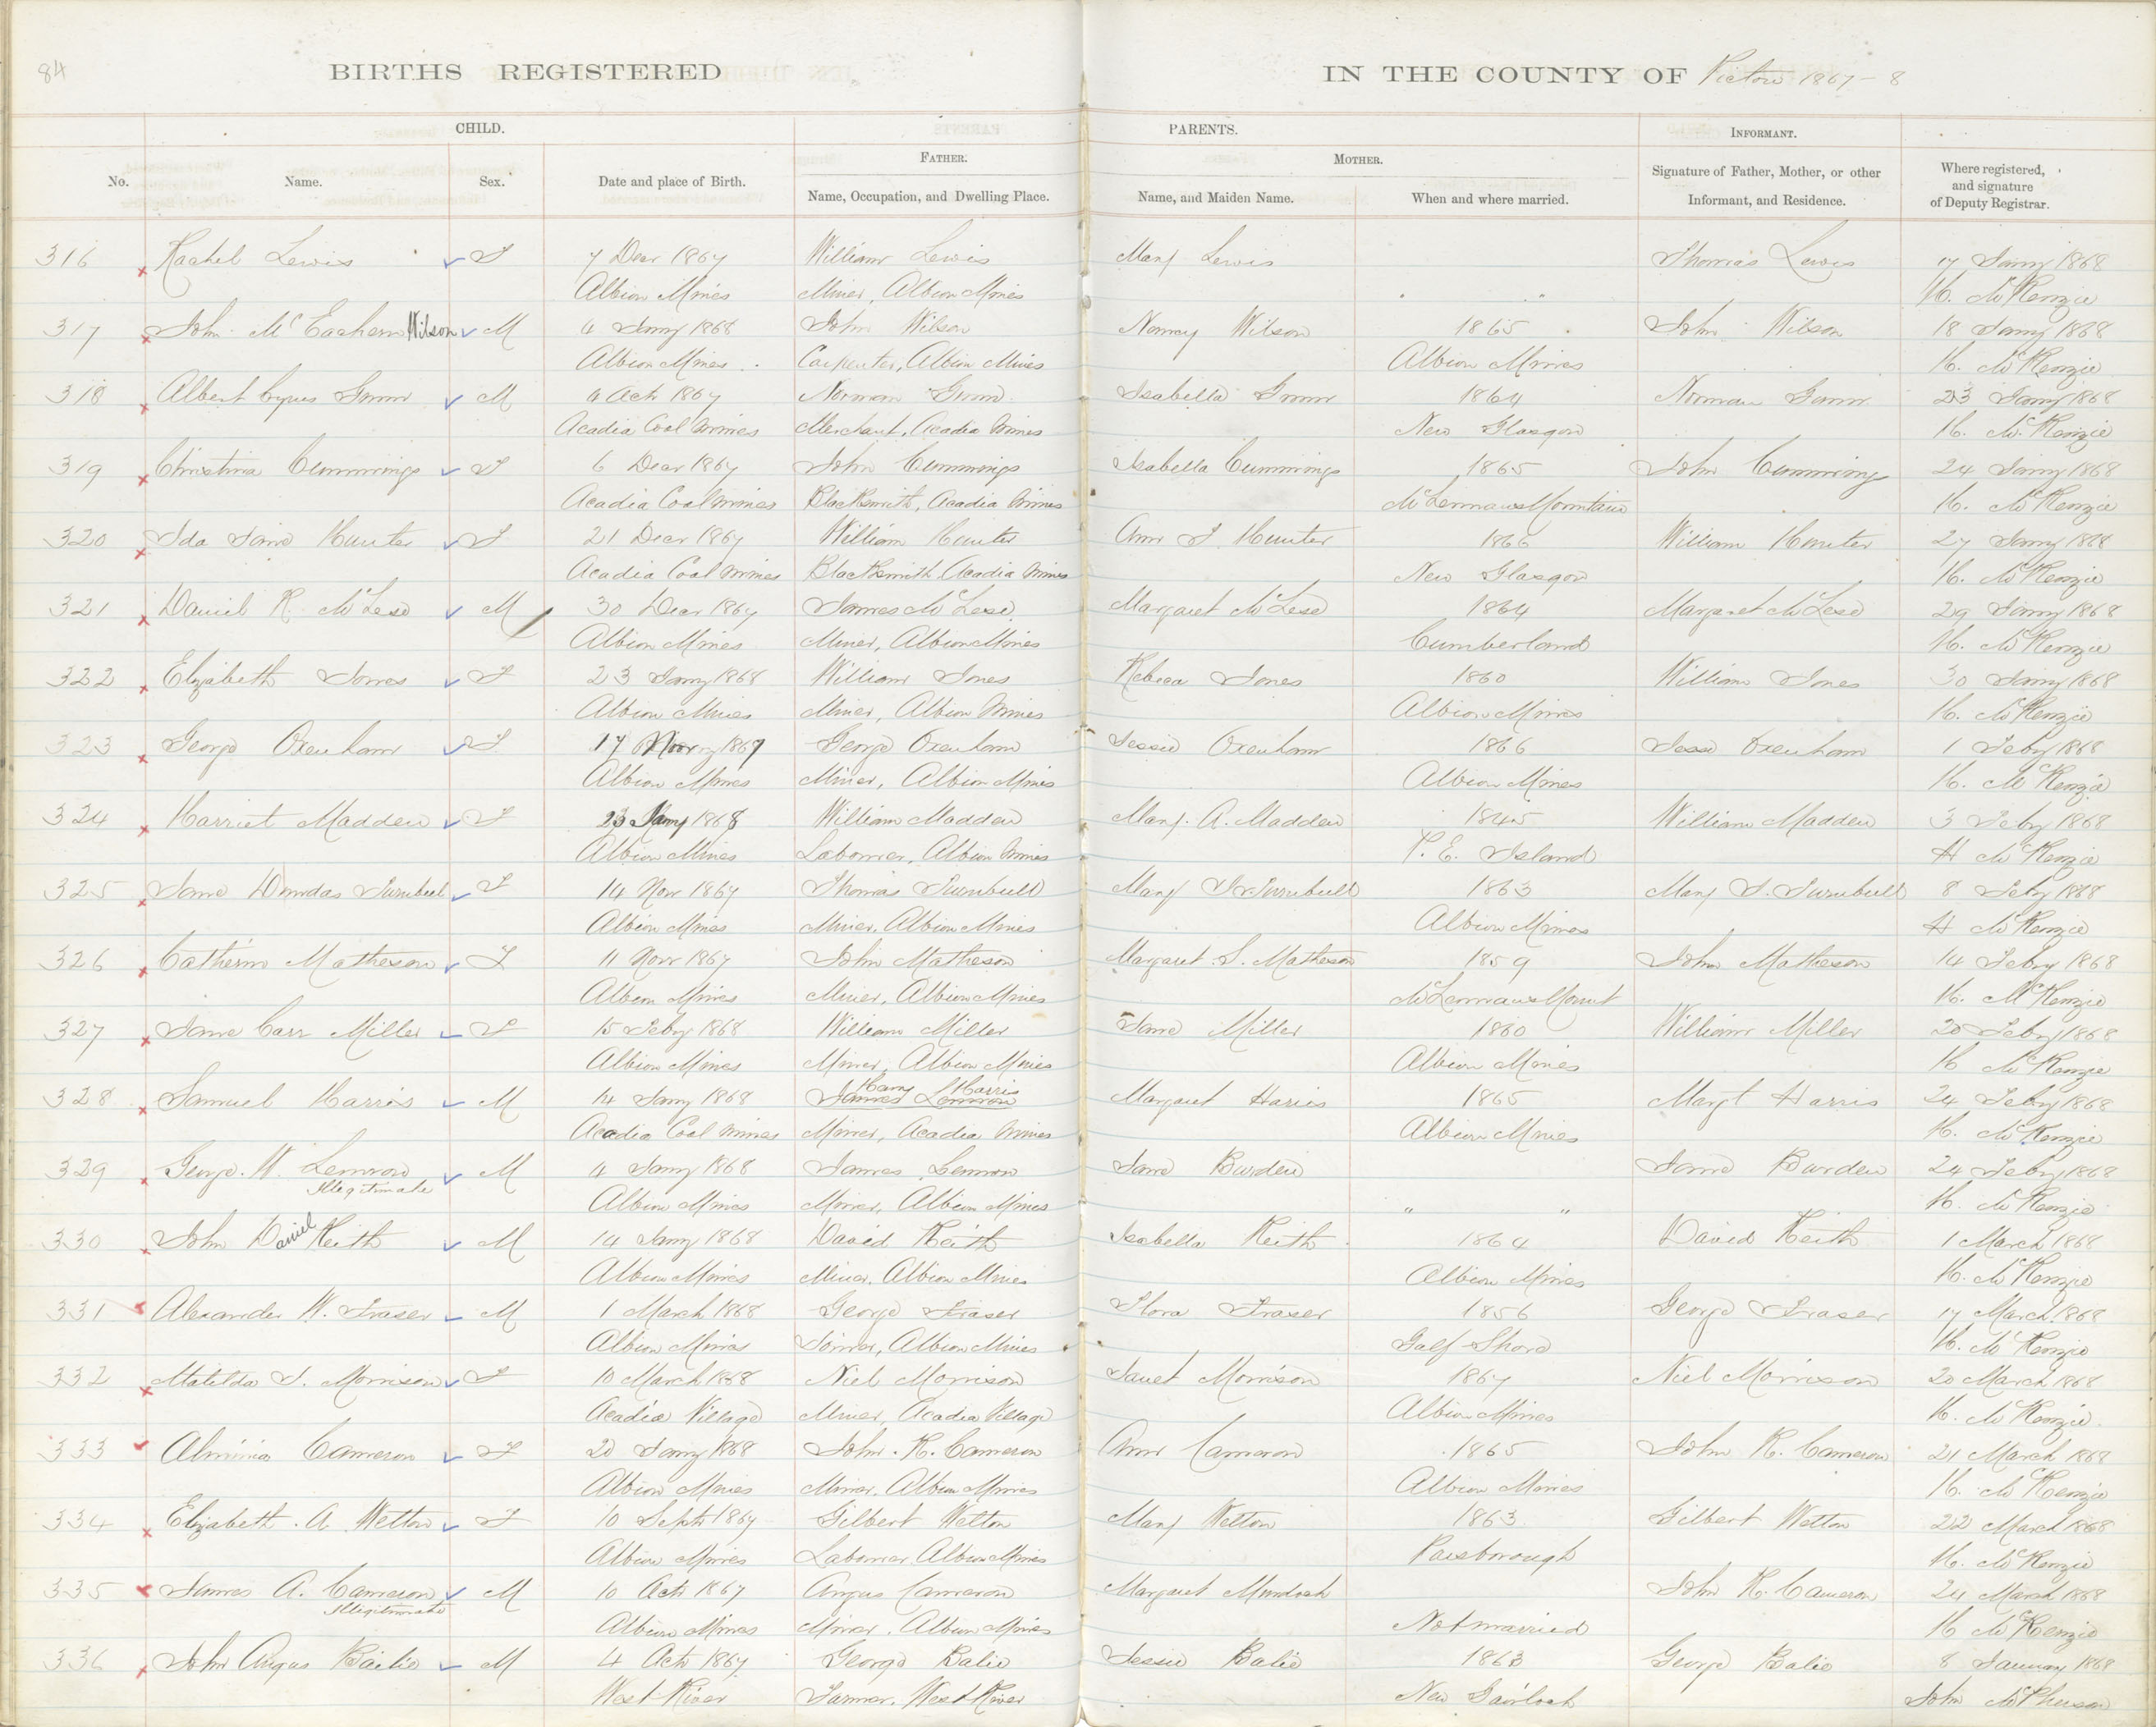 84
BIRTHS REGISTERED IN THE COUNTY OF Pictou 1867-8
CHILD. PARENTS. INFORMANT.
FATHER. MOTHER.
No. Name. Sex. Date and place of Birth. Name, Occupation, and Dwelling Place. Name, and Maiden Name. When and where married. Signature of Father, Mother, or other Informant, and Residence. Where registered, and signature of Deputy Registrar.
316 Rachel Lewis F 7 Decr 1867 William Lewis Mary Lewis Thomas Lewis 17 Jany 1868
Albion Mines Miner, Albion Mines " " H. McKenzie
317 John McEachern Wilson M 4 Jany 1868 John Wilson Nancy Wilson 1865 John Wilson 18 Jany 1868
Albion Mines Carpenter, Albion Mines Albion Mines H. McKenzie
318 Albert Cyrus Gunn M 4 Octr 1867 Norman Gunn Isabella Gunn 1864 Norman Gunn 23 Jany 1868
Acadia Coal Mines Merchant, Acadia Mines New Glasgow H. McKenzie
319 Christina Cummings F 6 Decr 1867 John Cummings Isabella Cummings 1865 John Cummings 24 Jany 1868
Acadia Coal Mines Blacksmith, Acadia Mines McLennans Mountain H. McKenzie
320 Ida Jane Hunter F 21 Decr 1867 William Hunter Ann J. Hunter 1866 William Hunter 27 Jany 1868
Acadia Coal Mines Blacksmith, Acadia Mines New Glasgow H. McKenzie
321 Daniel R. McLese M 30 Decr 1867 James McLese Margaret McLese 1864 Margaret McLese 29 Jany 1868
Albion Mines Miner, Albion Mines Cumberland H. McKenzie
322 Elizabeth Jones F 23 Jany 1868 William Jones Rebeca Jones 1860 William Jones 30 Jany 1868
Albion Mines Miner, Albion Mines Albion Mines H. McKenzie
323 George Oxenham F 17 1867 George Oxenham Jessie Oxenham 1866 Jessie Oxenham 1 Feby 1868
Albion Mines Miner, Albion Mines Albion Mines H. McKenzie
324 Harriet Madden F 23 Jany 1868 William Madden Mary A. Madden 1845 William Madden 3 Feby 1868
Albion Mines Labourer, Albion Mines P. E. Island H McKenzie
325 Jane Dundas Turnbull F 14 Novr 1867 Thomas Turnbull Mary J. Turnbull 1863 Mary J. Turnbull 8 Feby 1868
Albion Mines Miner, Albion Mines Albion Mines H McKenzie
326 Catherin Matheson F 11 Novr 1867 John Matheson Margaret S. Matheson 1859 John Matheson 14 Feby 1868
Albion Mines Miner, Albion Mines McLennans Mount H. McKenzie
327 Jane Carr Miller F 15 Feby 1868 William Miller Jane Miller 1860 William Miller 20 Feby 1868
Albion Mines Miner, Albion Mines Albion Mines H McKenzie
Harry Harris
328 Samuel Harris M 14 Jany 1868 James Lennon Margaret Harris 1865 Margt Harris 24 Feby 1868
Acadia Coal Mines Miner, Acadia Mines Albion Mines H. McKenzie
329 George W. Lennon M 4 Jany 1868 James Lennon Jane Burden Jane Burden 24 Feby 1868
Illegitimate Albion Mines Miner, Albion Mines " " H. McKenzie
330 John Daniel Keith M 14 Jany 1868 David Keith Isabella Keith 1864 David Keith 1 March 1868
Albion Mines Miner, Albion Mines Albion Mines H. McKenzie
331 Alexander W. Fraser M 1 March 1868 George Fraser Flora Fraser 1856 George Fraser 17 March 1868
Albion Mines Albion Mines Gulf Shore H. McKenzie
332 Matilda J. Morrison F 10 March 1868 Niel Morrison Janet Morrison 1867 Niel Morrison 20 March 1868
Acadia Village Miner, Acadia Village Albion Mines H. McKenzie
333 Alminia Cameron F 20 Jany 1868 John K. Cameron Ann Cameron 1865 John K. Cameron 21 March 1868
Albion Mines Miner, Albion Mines Albion Mines H. McKenzie
334 Elizabeth A Welton F 10 Septr 1867 Gilbert Welton Mary Welton 1863 Gilbert Welton 22 March 1868
Albion Mines Labourer, Albion Mines Parsborough H. McKenzie
335 James A. Cameron M 10 Octr 1867 Angus Cameron Margaret Murdoch John K. Cameron 24 March 1868
Illegitimate Albion Mines Miner, Albion Mines Not married H McKenzie
336 John Angus Bailie M 4 Octr 1867 George Balie Jessie Balie 1863 George Balie 8 January 1868
West River Farmer, West River New Gairloch John McPherson